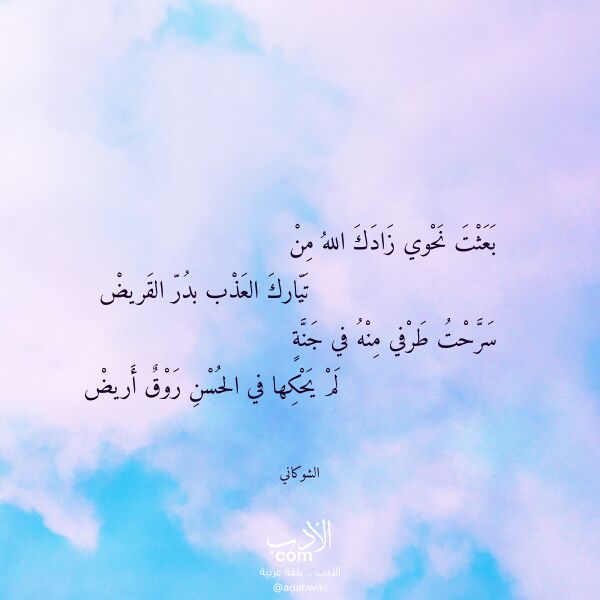 بَعَثْتَ نَحْوي زَادَكَ اللهُ مِنْ
تَيّاركَ العَذْب بدُرّ القَريضْ
سَرَّحْتُ طَرْفي مِنْهُ في جَنَّةٍ
لَمْ يَحْكِها في الحُسْنِ رَوْقٌ أَريضْ
الشوكاني
الأدب
.com
الأدب .. بلغة عربية
@adabwiki